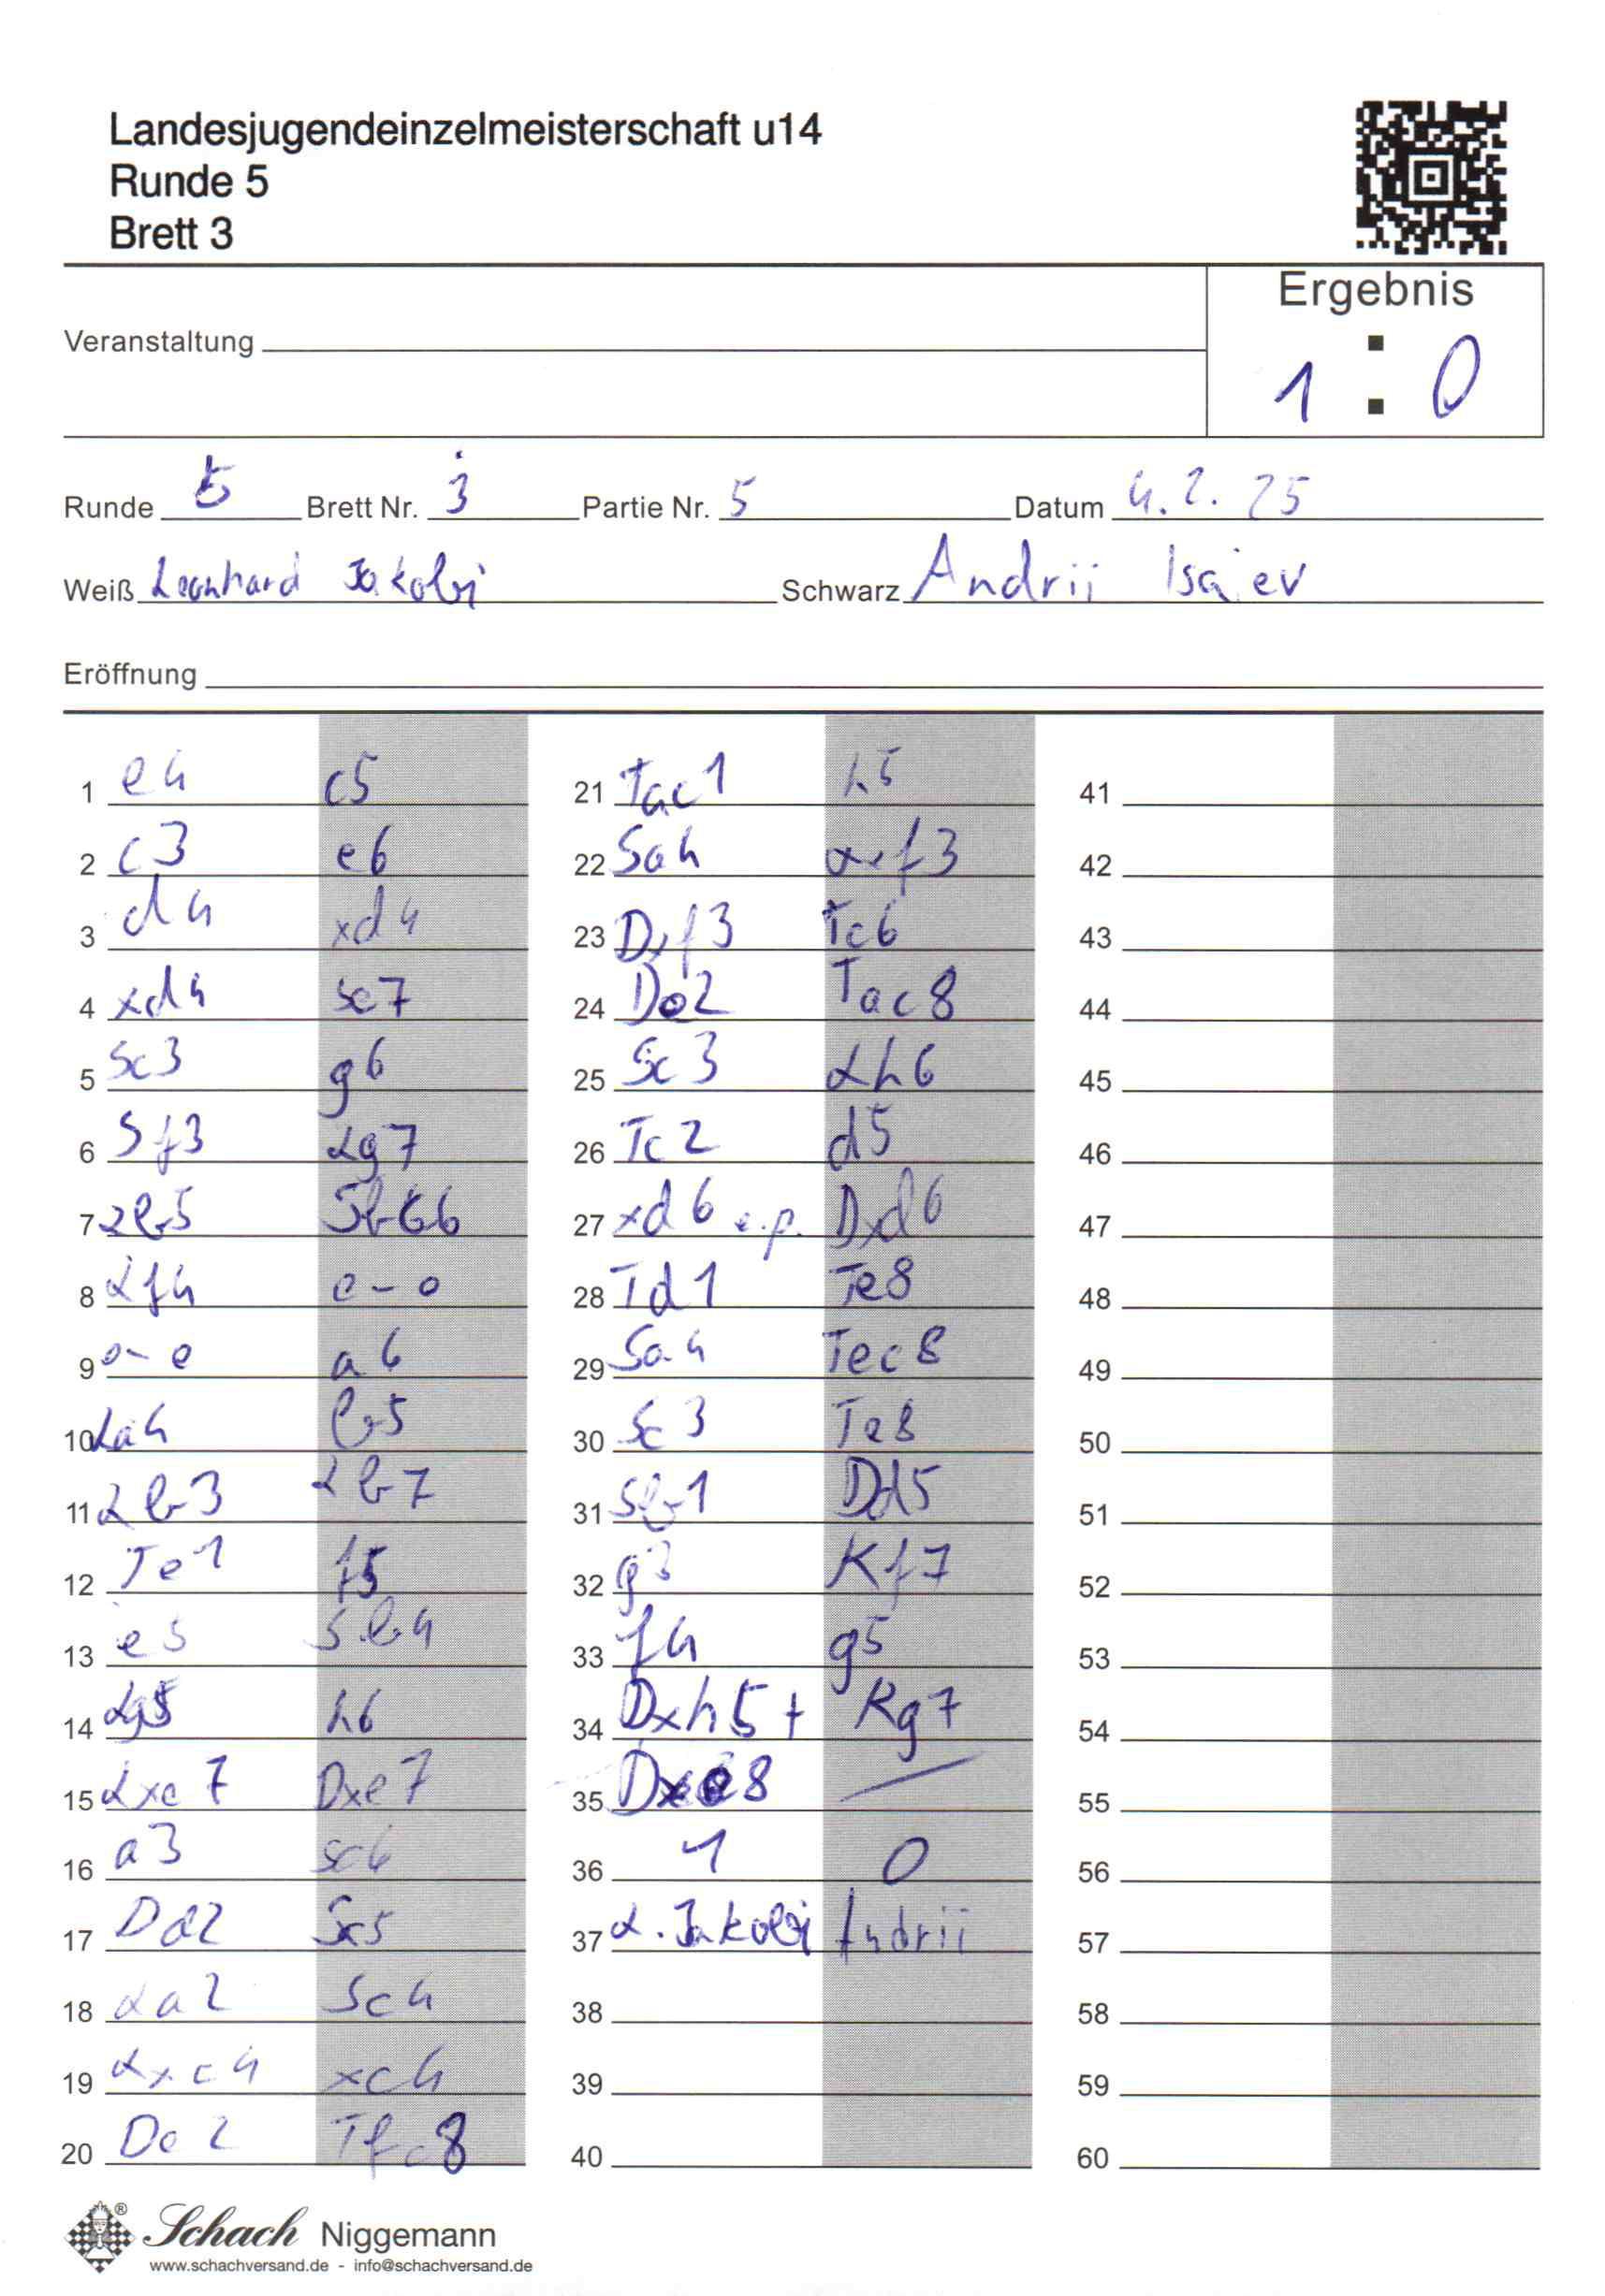 Landesjugendeinzelmeisterschaft u14
Runde 5
Brett 3
Ergebnis
Veranstaltung
1 : 0
Runde 5 Brett Nr. 3 Partie Nr. 5 Datum 4.2.25
Weiß Leonhard Jakobi Schwarz Andrii Isaiev
Eröffnung
1 e4 c5 21 Tac1 h5 41
2 c3 e6 22 Sa4 Lxf3 42
3 d4 xd4 23 Dxf3 Tc6 43
4 xd4 Se7 24 De2 Tac8 44
5 Sc3 g6 25 Sc3 Lh6 45
6 Sf3 Lg7 26 Tc2 d5 46
7 Lb5 Sbc6 27 xd6 e.p. Dxd6 47
8 Lf4 o-o 28 Td1 Te8 48
9 o-o a6 29 Sa4 Tec8 49
10 La4 b5 30 Sc3 Te8 50
11 Lb3 Lb7 31 Sb1 Dd5 51
12 Te1 f5 32 g3 Kf7 52
13 e5 Sb4 33 f4 g5 53
14 Lg5 h6 34 Dxh5+ Kg7 54
15 Lxe7 Dxe7 35 Dxe8 55
16 a3 Sc6 36 1 0 56
17 Dd2 Sa5 37 L. Jakobi Andrii 57
18 La2 Sc4 38 58
19 Lxc4 xc4 39 59
20 De2 Tfc8 40 60
Schach Niggemann
www.schachversand.de - info@schachversand.de